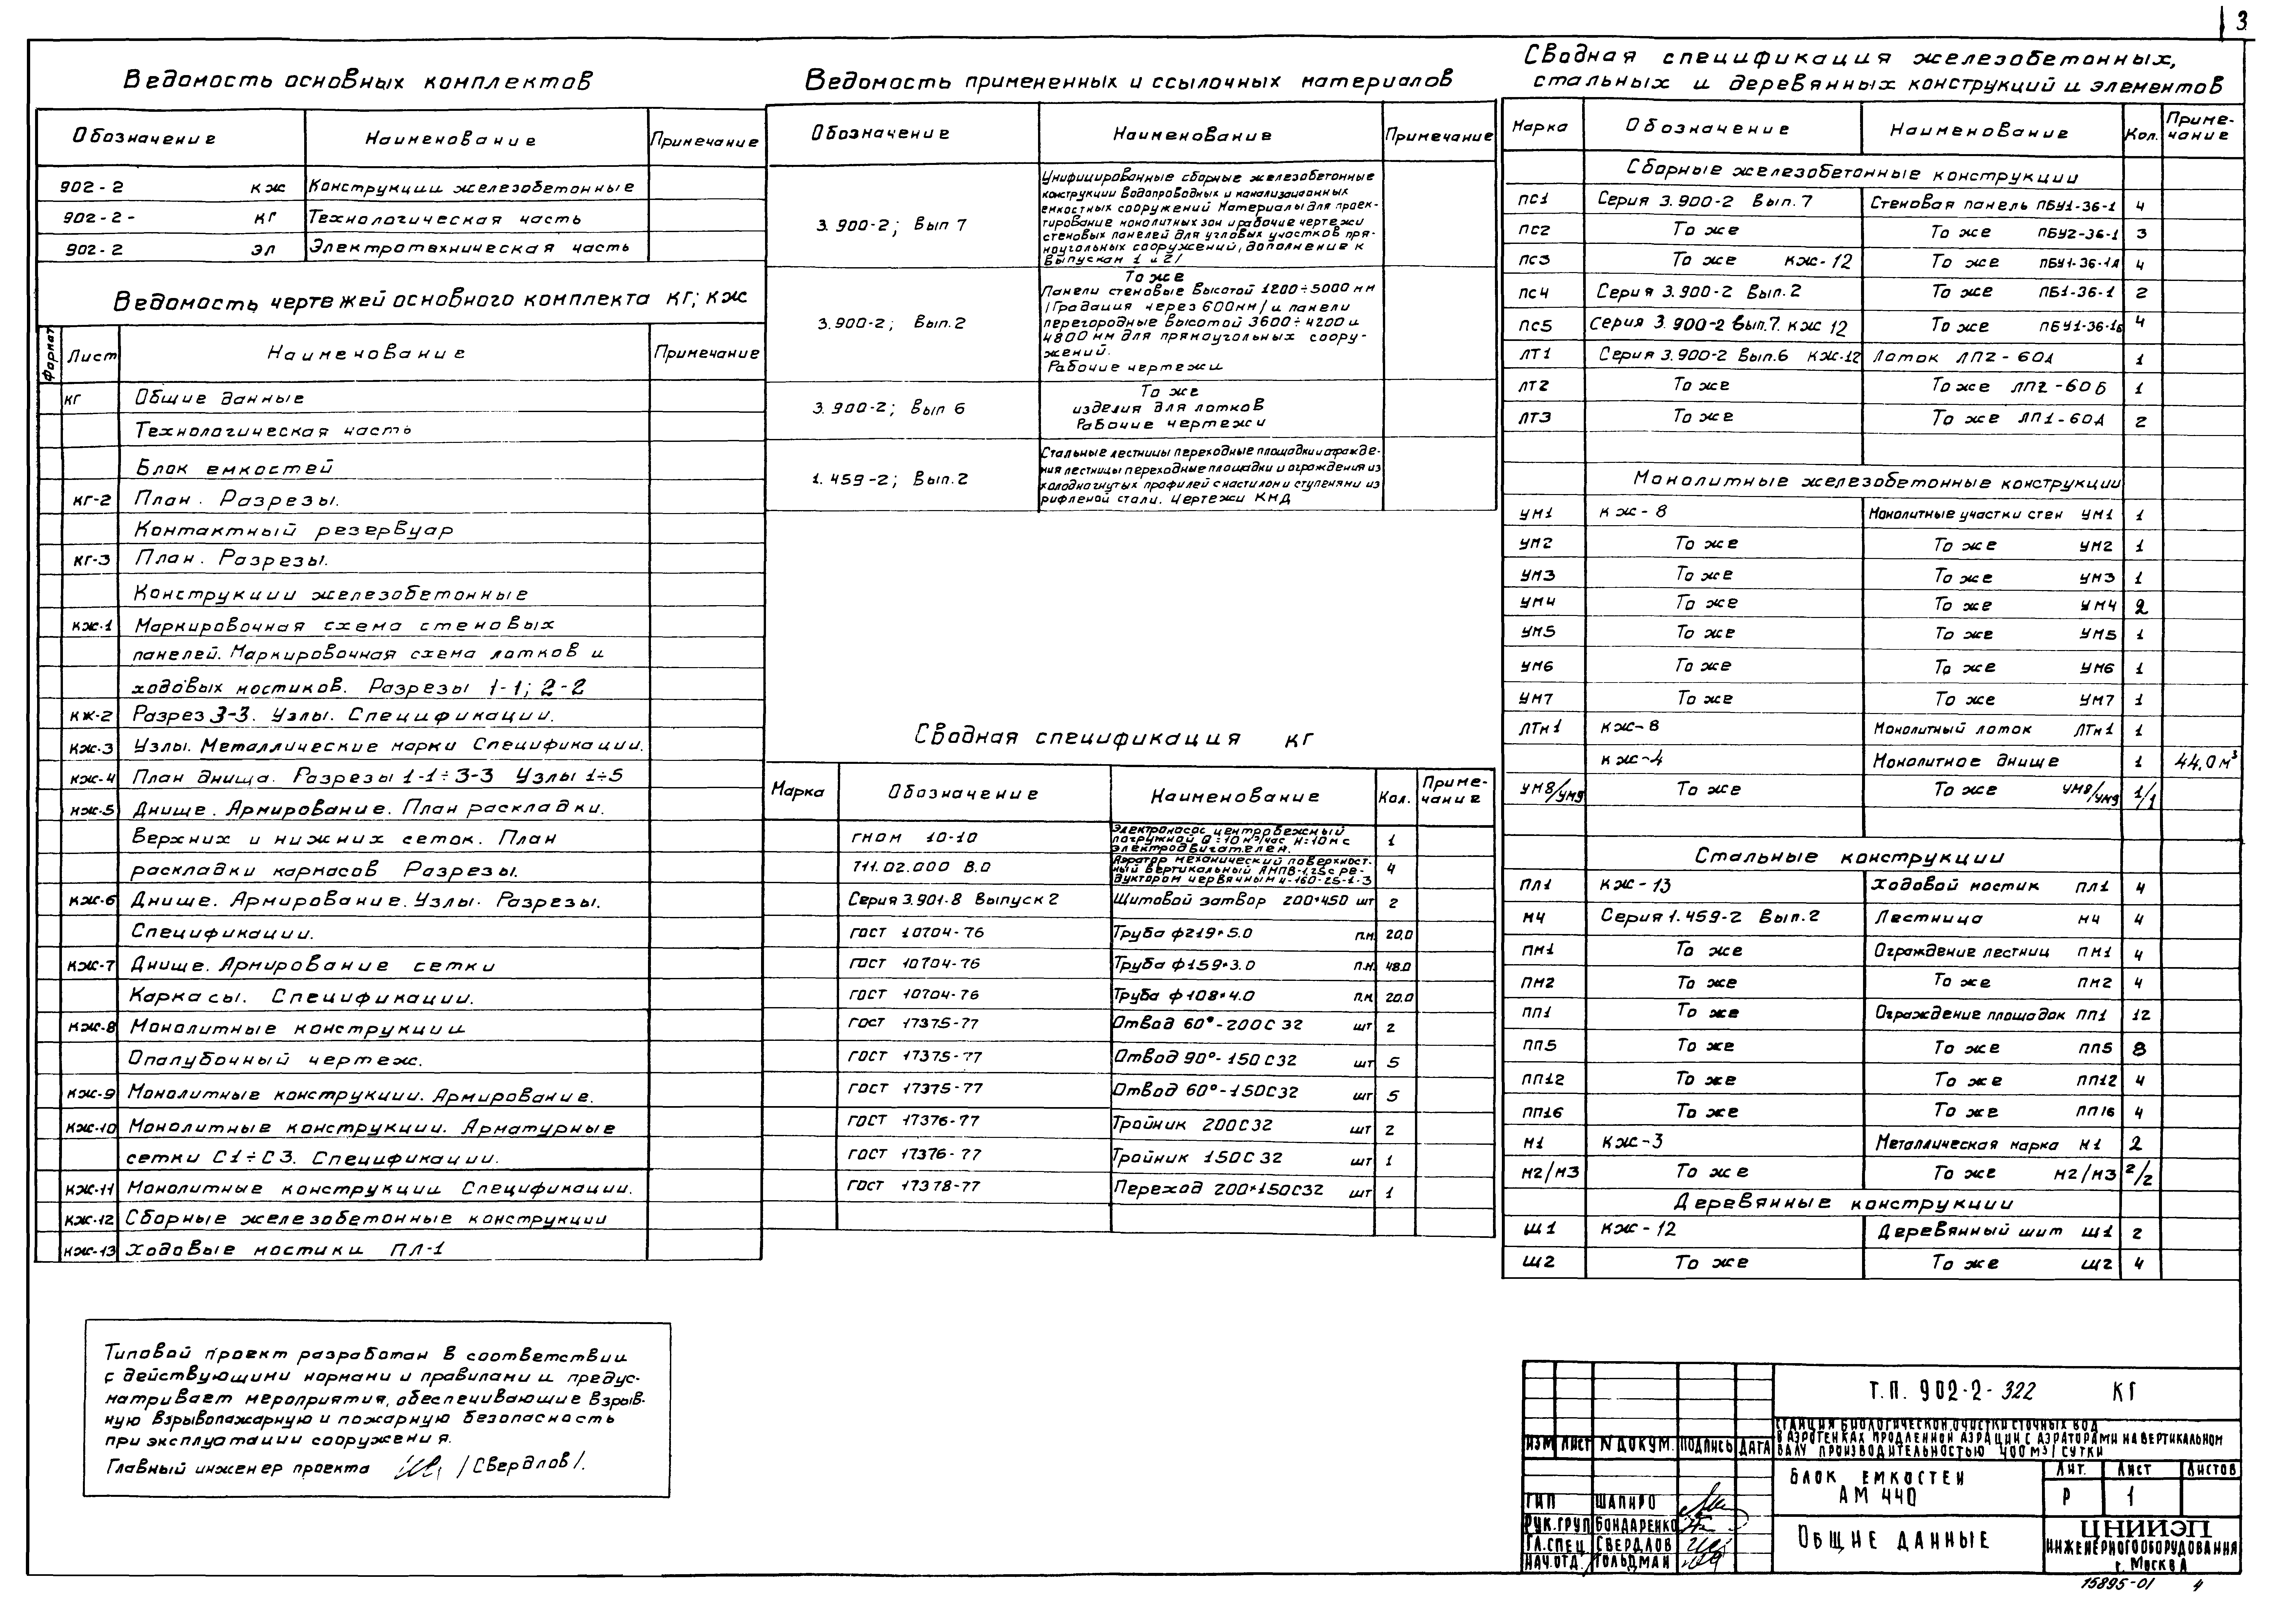 3
Ведомость основных комплектов
Обозначение Наименование Примечание
902-2 КЖ Конструкции железобетонные
902-2- КГ Технологическая часть
902-2 ЭЛ Электротехническая часть
Ведомость чертежей основного комплекта КГ; КЖ
Формат Лист Наименование Примечание
КГ Общие данные
Технологическая часть
Блок емкостей
КГ-2 План. Разрезы.
Контактный резервуар
КГ-3 План. Разрезы.
Конструкции железобетонные
КЖ-1 Маркировочная схема стеновых
панелей. Маркировочная схема лотков и
ходовых мостиков. Разрезы 1-1; 2-2
КЖ-2 Разрез 3-3. Узлы. Спецификации.
КЖ-3 Узлы. Металлические марки Спецификации.
КЖ-4 План днища. Разрезы 1-1÷3-3 Узлы 1÷5
КЖ-5 Днище. Армирование. План раскладки.
Верхних и нижних сеток. План
раскладки каркасов Разрезы.
КЖ-6 Днище. Армирование. Узлы. Разрезы.
Спецификации.
КЖ-7 Днище. Армирование сетки
Каркасы. Спецификации.
КЖ-8 Монолитные конструкции
Опалубочный чертеж.
КЖ-9 Монолитные конструкции. Армирование.
КЖ-10 Монолитные конструкции. Арматурные
сетки С1÷С3. Спецификации.
КЖ-11 Монолитные конструкции Спецификации.
КЖ-12 Сборные железобетонные конструкции
КЖ-13 Ходовые мостики ПЛ-1
Типовой проект разработан в соответствии
с действующими нормами и правилами и предус-
матривает мероприятия, обеспечивающие взрыв-
ную взрывопажарную и пожарную безопасность
при эксплуатации сооружения.
Главный инженер проекта /Свердлов/.
Ведомость примененных и ссылочных материалов
Обозначение Наименование Примечание
3.900-2; Вып 7 Унифицированные сборные железобетонные
конструкции водопроводных и канализационных
емкостных сооружений Материалы для проек-
тирование монолитных зон и рабочие чертежи
стеновых панелей для угловых участков пря-
моугольных сооружений, дополнение к
выпускам 1 и 2/
То же
3.900-2; Вып.2 Панели стеновые высотой 1200÷5000 мм
/Градация через 600мм/ и панели
перегородные высотой 3600÷4200 и
4800 мм для прямоугольных соору-
жений.
Рабочие чертежи
3.900-2; Вып 6 То же
изделия для лотков
Рабочие чертежи
1.459-2; Вып.2 Стальные лестницы переходные площадки и огражде-
ния лестницы переходные площадки и ограждения из
холодногнутых профилей с настилом и ступенями из
рифленой стали. Чертежи КМД
Сводная спецификация КГ
Марка Обозначение Наименование Кол. Приме-
чание
ГНОМ 10-10 Электронасос центробежный
погружной Q=10 м³/час Н=10м с
электродвигателем. 1
Т11.02.000 В.О Аэратор механический поверхност-
ный вертикальный АМПВ-1,25с ре-
дуктором червячным Ч-160-25-1-3 4
Серия 3.901-8 Выпуск 2 Щитовой затвор 200*450 шт 2
ГОСТ 10704-76 Труба ф219*5.0 п.м. 20.0
ГОСТ 10704-76 Труба ф159*3.0 п.м. 48.0
ГОСТ 10704-76 Труба ф108*4.0 п.м. 20.0
ГОСТ 17375-77 Отвод 60°-200С32 шт 2
ГОСТ 17375-77 Отвод 90°-150С32 шт 5
ГОСТ 17375-77 Отвод 60°-150С32 шт 5
ГОСТ 17376-77 Тройник 200С32 шт 2
ГОСТ 17376-77 Тройник 150С32 шт 1
ГОСТ 17378-77 Переход 200*150С32 шт 1
Сводная спецификация железобетонных,
стальных и деревянных конструкций и элементов
Марка Обозначение Наименование Кол. Приме-
чание
Сборные железобетонные конструкции
ПС1 Серия 3.900-2 Вып.7 Стеновая панель ПБУ1-36-1 4
ПС2 То же То же ПБУ2-36-1 3
ПС3 То же КЖ-12 То же ПБУ1-36-1А 4
ПС4 Серия 3.900-2 Вып.2 То же ПБ1-36-1 2
ПС5 Серия 3.900-2 Вып.7. КЖ 12 То же ПБУ1-36-1Б 4
ЛТ1 Серия 3.900-2 Вып.6 КЖ-12 Лоток ЛП2-60А 1
ЛТ2 То же То же ЛП2-60Б 1
ЛТ3 То же То же ЛП1-60А 2
Монолитные железобетонные конструкции
УМ1 КЖ-8 Монолитные участки стен УМ1 1
УМ2 То же То же УМ2 1
УМ3 То же То же УМ3 1
УМ4 То же То же УМ4 2
УМ5 То же То же УМ5 1
УМ6 То же То же УМ6 1
УМ7 То же То же УМ7 1
ЛТм1 КЖ-8 Монолитный лоток ЛТм1 1
КЖ-4 Монолитное днище 1 44,0м³
УМ8/УМ9 То же То же УМ8/УМ9 1/1
Стальные конструкции
ПЛ1 КЖ-13 Ходовой мостик ПЛ1 4
М4 Серия 1.459-2 Вып.2 Лестница М4 4
ПМ1 То же Ограждение лестниц ПМ1 4
ПМ2 То же То же ПМ2 4
ПП1 То же Ограждение площадок ПП1 12
ПП5 То же То же ПП5 8
ПП12 То же То же ПП12 4
ПП16 То же То же ПП16 4
М1 КЖ-3 Металлическая марка М1 2
М2/М3 То же То же М2/М3 2/2
Деревянные конструкции
Щ1 КЖ-12 Деревянный щит Щ1 2
Щ2 То же То же Щ2 4
Т.П. 902-2-322 КГ
СТАНЦИЯ БИОЛОГИЧЕСКОЙ ОЧИСТКИ СТОЧНЫХ ВОД
В АЭРОТЕНКАХ ПРОДЛЕННОЙ АЭРАЦИИ С АЭРАТОРАМИ НА ВЕРТИКАЛЬНОМ
ВАЛУ ПРОИЗВОДИТЕЛЬНОСТЬЮ 400 М3/СУТКИ
ИЗМ ЛИСТ N ДОКУМ. ПОДПИСЬ ДАТА
БЛОК ЕМКОСТЕЙ
АМ 440
ЛИТ. ЛИСТ ЛИСТОВ
Р 1
ГИП ШАПИРО
РУК.ГРУП БОНДАРЕНКО
ГЛ.СПЕЦ СВЕРДЛОВ
НАЧ.ОТД. ГОЛЬДМАН
ОБЩИЕ ДАННЫЕ
ЦНИИЭП
ИНЖЕНЕРНОГО ОБОРУДОВАНИЯ
г. МОСКВА
15895-01 4